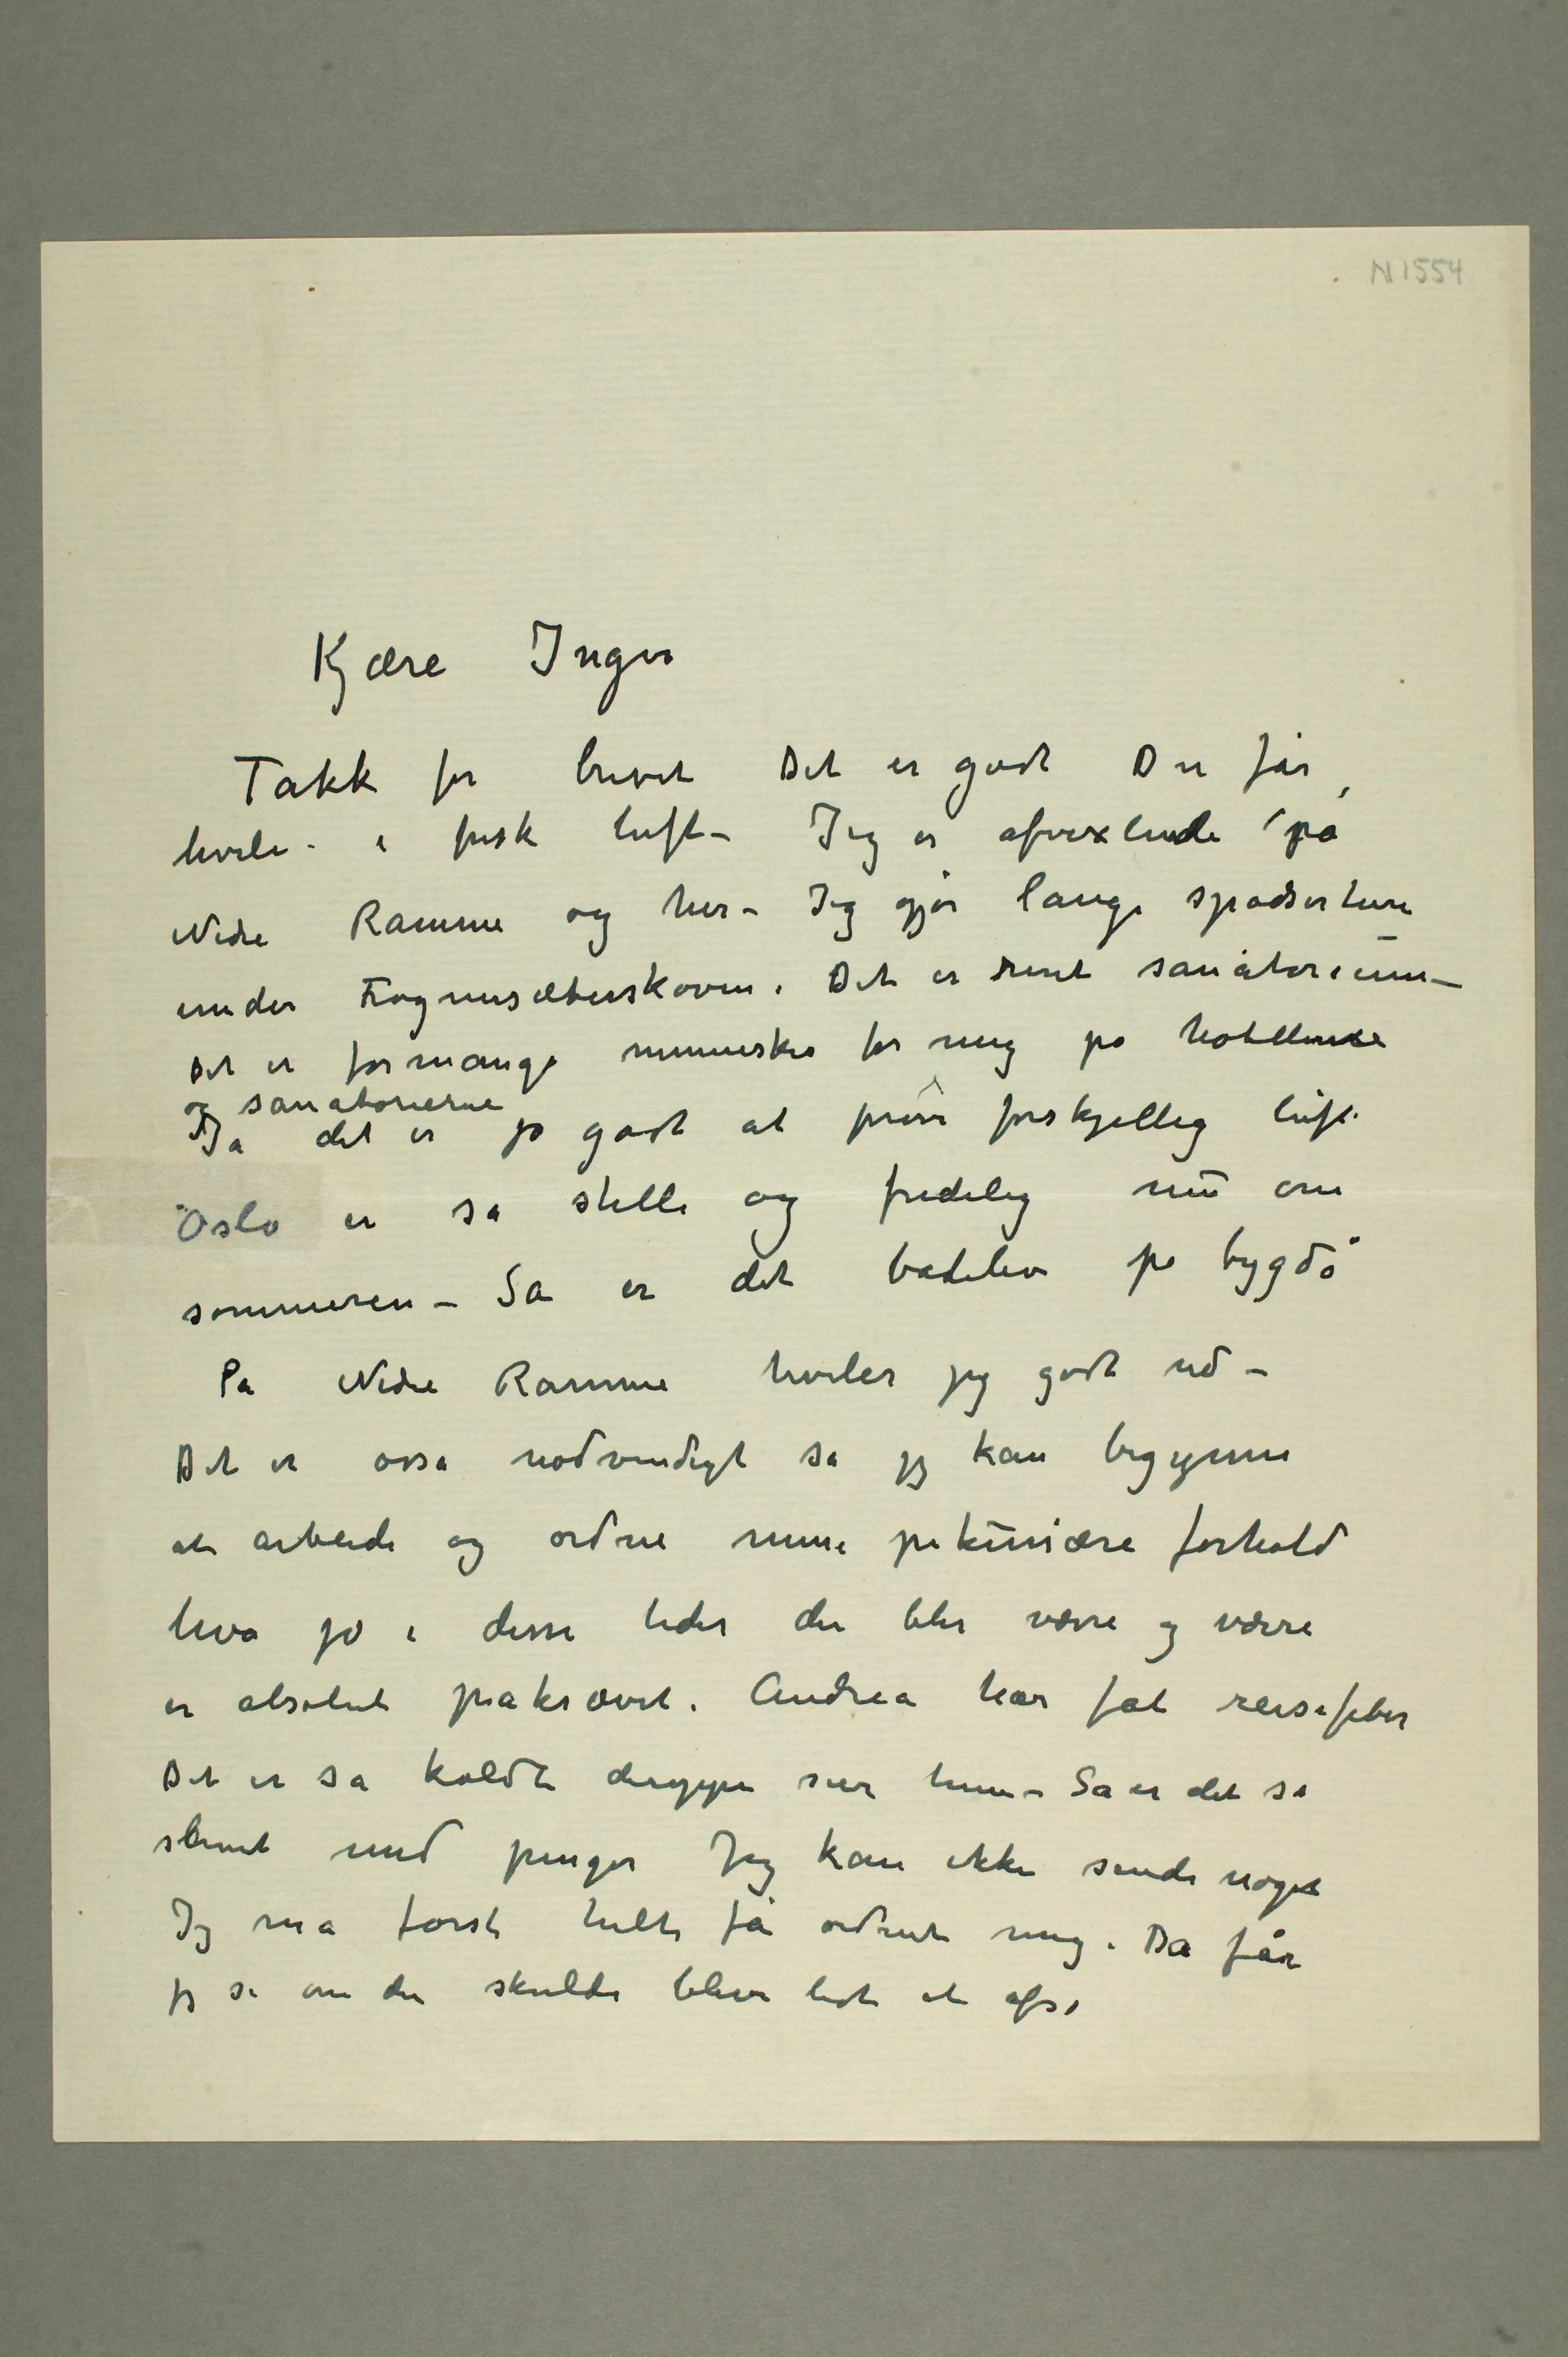 N 1554
Kjære Inger
Takk for brevet Det er godt Du får
hvile – i frisk luft – Jeg er afvexlende på
Nedre Ramme og her – Jeg gjør lange spadserture
under Frognersæterskoven. Det er rent sanatorium –
Det er formange mennesker for mig på hotellerne
og sanatorierne
Ja det er jo godt at prøve forskjellig luft
Oslo er så stille og fredelig nu om
sommeren – Så er det badeliv på bygdø
På Nedre Ramme hviler jeg godt ud –
Det er osså nødvendigt så jeg kan begynne
at arbeide og ordne mine pekuniære forhold
hva jo i disse tider der blir værre og værre
er absolut påkrævet. Andrea har fåt reisefeber
Det er så koldt deroppe sier hun – Så er det så
slemt med penger Jeg kan ikke sende noget
Jeg må først helt få ordnet mig. Da får
jeg se om der skulde blive lidt at afse